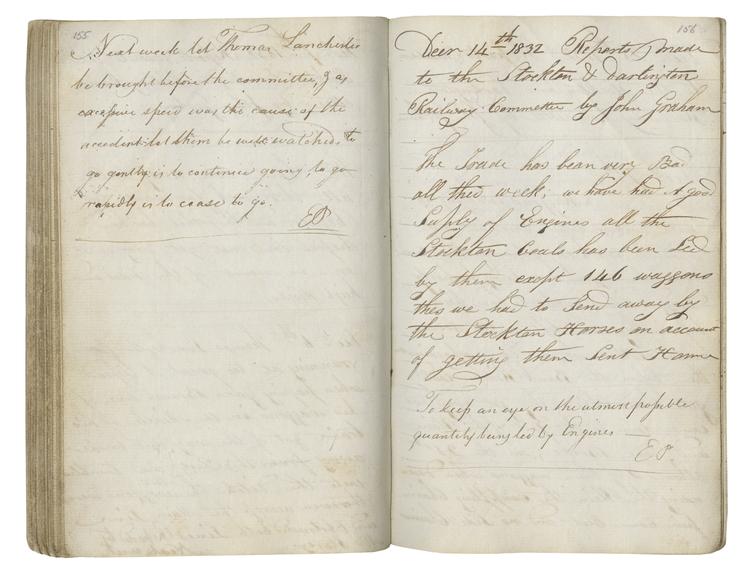 155
Next week let Thomas Lanchester
be brought before the committee, & as
excessive speed was the cause of the
accident let them be well watched, to
go gently is to continue going, to go
rapidly is to cease to go.
EP
156
Decr 14th 1832 Reports made
to the Stockton & Darlington
Railway Committee by John Graham
The Trade has bean very Bad
all this week, we have had A good
Suply of Engines all the
Stockton Coals has been Led
by them exept 146 waggons
thes we had to Send away by
the Stockton Horses on account
of getting them Sent Home
To keep an eye on the utmost possible
quantity being led by Engines
EP.